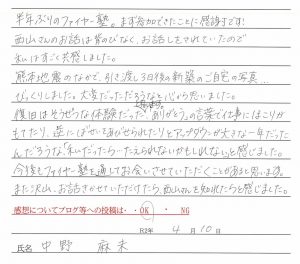 半年ぶりのファイヤー塾。まず参加できたことに感謝です!
西山さんのお話は背のびなく、お話しをされていたので
私はすごく共感しました。
熊本地震のなかで、引き渡し3日後の新築のご自宅の写真…
びっくりしました。大変だっただろうなと心から思いました。
復旧はそうぜつな体験だった。「ありがとう」の言葉で仕事にほこりが
もてたり、逆にばせいをあびせられたりとアップダウンが大きな一年だった
んだろうな「私だったら…たえられないかもしれない」と感じました。
今後もファイヤー塾を通してお会いさせていただくことがあると思います。
また沢山、お話しさせていただけたら、西山さんを知れたらと感じました。
感想についてブログ等への投稿は・・OK ・ NG
R2年 4月10日
氏名 中野 麻未